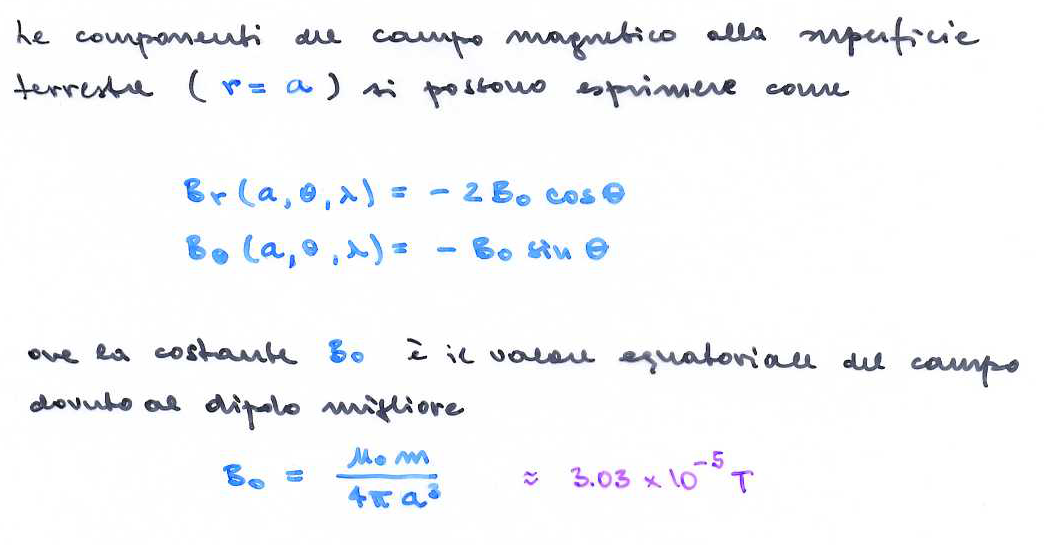 Le componenti del campo magnetico alla superficie
terrestre ( r = a ) si possono esprimere come
Br (a, θ, λ) = - 2 B₀ cos θ
Bθ (a, θ, λ) = - B₀ sin θ
ove la costante B₀ è il valore equatoriale del campo
dovuto al dipolo migliore
B₀ = μ₀ m / 4π a³ ≈ 3.03 × 10⁻⁵ T